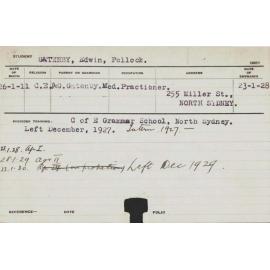 STUDENT GATENBY, Edwin, Pollock.
DATE OF BIRTH RELIGION PARENT OR GUARDIAN OCCUPATION ADDRESS DATE OF ENTRANCE
26-1-11 C.E. Gatenby. Med. Practioner. 255 Miller St., 23-1-28
NORTH SYDNEY.
PREVIOUS TRAINING: C of E Grammar School, North Sydney.
Left December, 1927. Interm 1927 —
28.1.29 Agr II
Left Dec 1929.
REFERENCE— DATE FOLIO